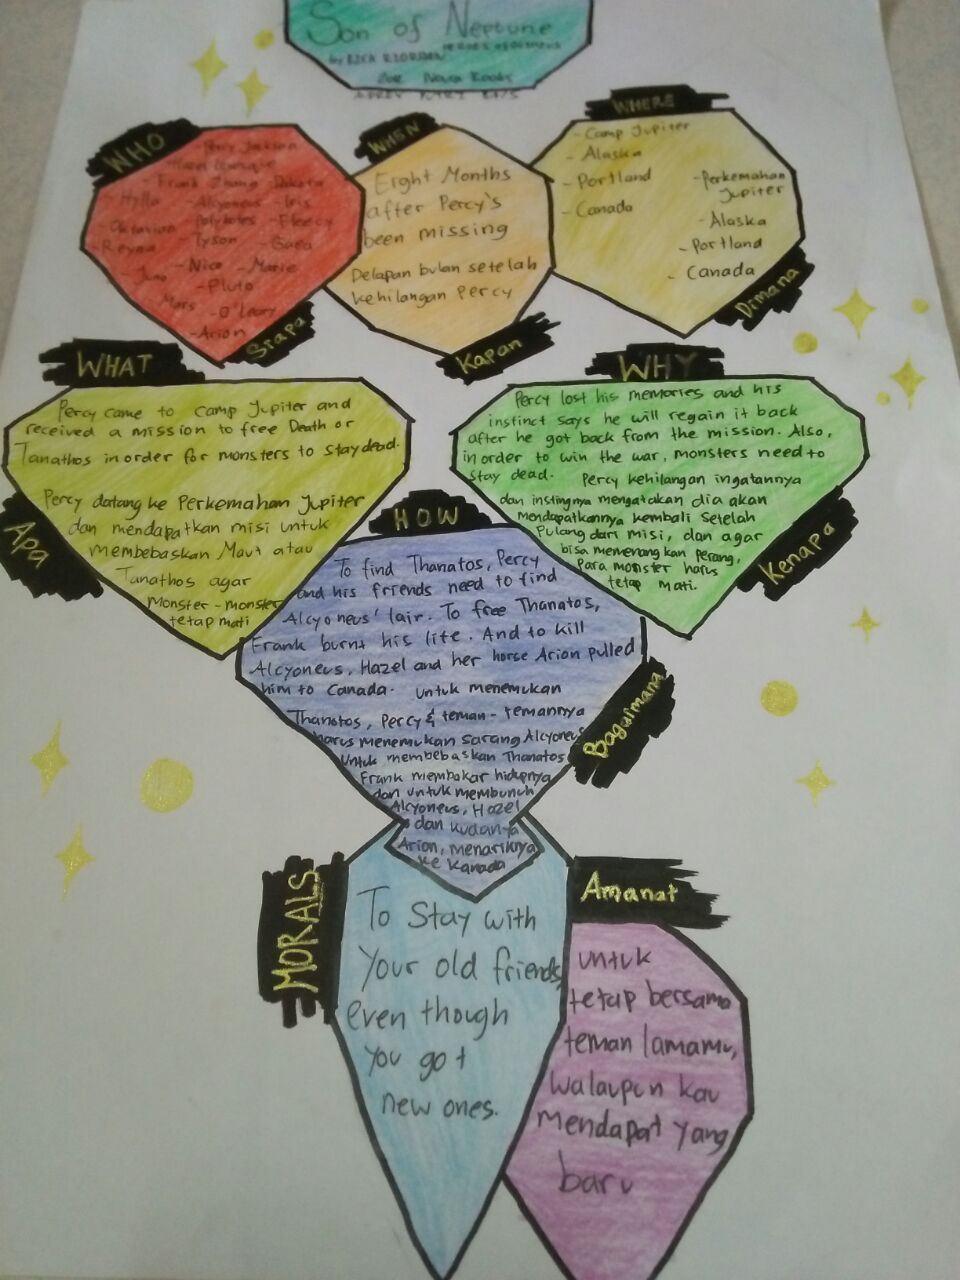 Son of Neptune
HEROES OF OLYMPUS
by RICK RIORDAN
Noura Books
WHO
Percy Jackson
- Frank Zhang - Dakota
- Hylla - Alcyoneus - Iris
Oktavian Polybotes - Fleecy
- Reyna Tyson - Gaea
- Juno - Nico - Marie
- Pluto
Mars - O'Leary
- Arion
Siapa
WHEN
Eight Months
after Percy's
been missing
Delapan bulan setelah
kehilangan Percy
Kapan
WHERE
- Camp Jupiter
- Alaska
- Portland
- Canada
- Perkemahan
Jupiter
- Alaska
- Portland
- Canada
Dimana
WHAT
Percy came to Camp Jupiter and
received a mission to free Death or
Tanathos in order for monsters to stay dead.
Percy datang ke Perkemahan Jupiter
dan mendapatkan misi untuk
membebaskan Maut atau
Tanathos agar
Monster-monster
tetap mati
Apa
WHY
Percy lost his memories and his
instinct says he will regain it back
after he got back from the mission. Also,
in order to win the war, monsters need to
stay dead. Percy kehilangan ingatannya
dan instingnya mengatakan dia akan
Mendapatkannya kembali setelah
Pulang dari misi, dan agar
bisa memenangkan perang,
Para monster harus
tetap mati.
Kenapa
HOW
To find Thanatos, Percy
and his friends need to find
Alcyoneus' lair. To free Thanatos,
Frank burnt his life. And to kill
Alcyoneus, Hazel and her horse Arion pulled
him to Canada. untuk menemukan
Thanatos, Percy & teman-temannya
harus menemukan sarang Alcyoneus
Untuk membebaskan Thanatos
Frank membakar hidupnya
dan untuk membunuh
Alcyoneus, Hazel
dan kudanya
Arion, menariknya
ke Kanada
Bagaimana
MORALS
To stay with
Your old friends,
even though
you got
new ones.
Amanat
untuk
tetap bersama
teman lamamu,
walaupun kau
mendapat yang
baru